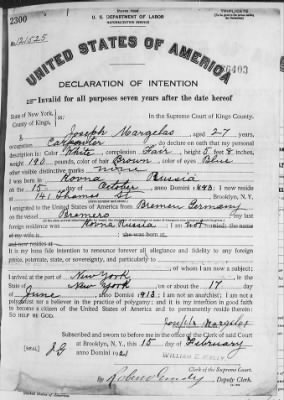 2300
U. S. DEPARTMENT OF LABOR
NATURALIZATION SERVICE
No. 121525
UNITED STATES OF AMERICA
DECLARATION OF INTENTION
Invalid for all purposes seven years after the date hereof
State of New York,
County of Kings,
ss:
In the Supreme Court of Kings County.
I, Joseph Margelas, aged 27 years,
occupation Carpenter, do declare on oath that my personal
description is: Color White, complexion Fair, height 5 feet 8 inches,
weight 190 pounds, color of hair Brown, color of eyes Blue
other visible distinctive marks none
I was born in Kovna Russia
on the 15 day of October, anno Domini 1893; I now reside
at 141 Thames St, Brooklyn, N. Y.
I emigrated to the United States of America from Bremen Germany
on the vessel; my last
foreign residence was Kovna Russia; I am not married; the name
of my wife is; she was born at
and now resides at
It is my bona fide intention to renounce forever all allegiance and fidelity to any foreign
prince, potentate, state, or sovereignty, and particularly to
, of whom I am now a subject;
I arrived at the port of New York, in the
State of New York, on or about the 17 day
of June, anno Domini 1913; I am not an anarchist; I am not a
polygamist nor a believer in the practice of polygamy; and it is my intention in good faith
to become a citizen of the United States of America and to permanently reside therein:
SO HELP ME GOD.
Joseph Margelas
Subscribed and sworn to before me in the office of the Clerk of said Court
at Brooklyn, N. Y., this 15 day of February
anno Domini 1921
[SEAL]
Clerk of the Supreme Court.
By, Deputy Clerk.